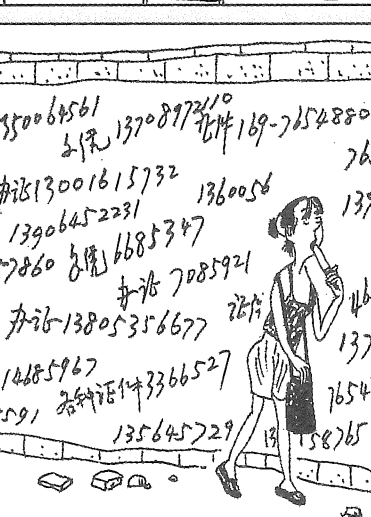 350064561
文凭 13708972110
证件 169-7654880
76
办证13001615732
1360056
139
13906452231
-7860 文凭 6685347
办证 7085921
证件
46
办证-13805356677
137
14685967
各种证件3366527
7654
5591
135645729
13 158765